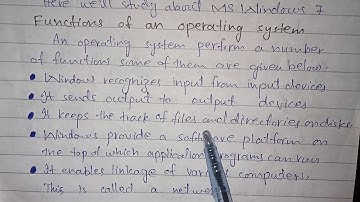 Here we'll study about MS Windows 7
Functions of an operating system
An operating system perform a number
of functions some of them are given below-
• Windows recognizes input from input devices
• It sends output to output devices
• It keeps the track of files and directories on disk
• Windows provide a software platform on
the top of which application programs can run
• It enables linkage of various computers
This is called a